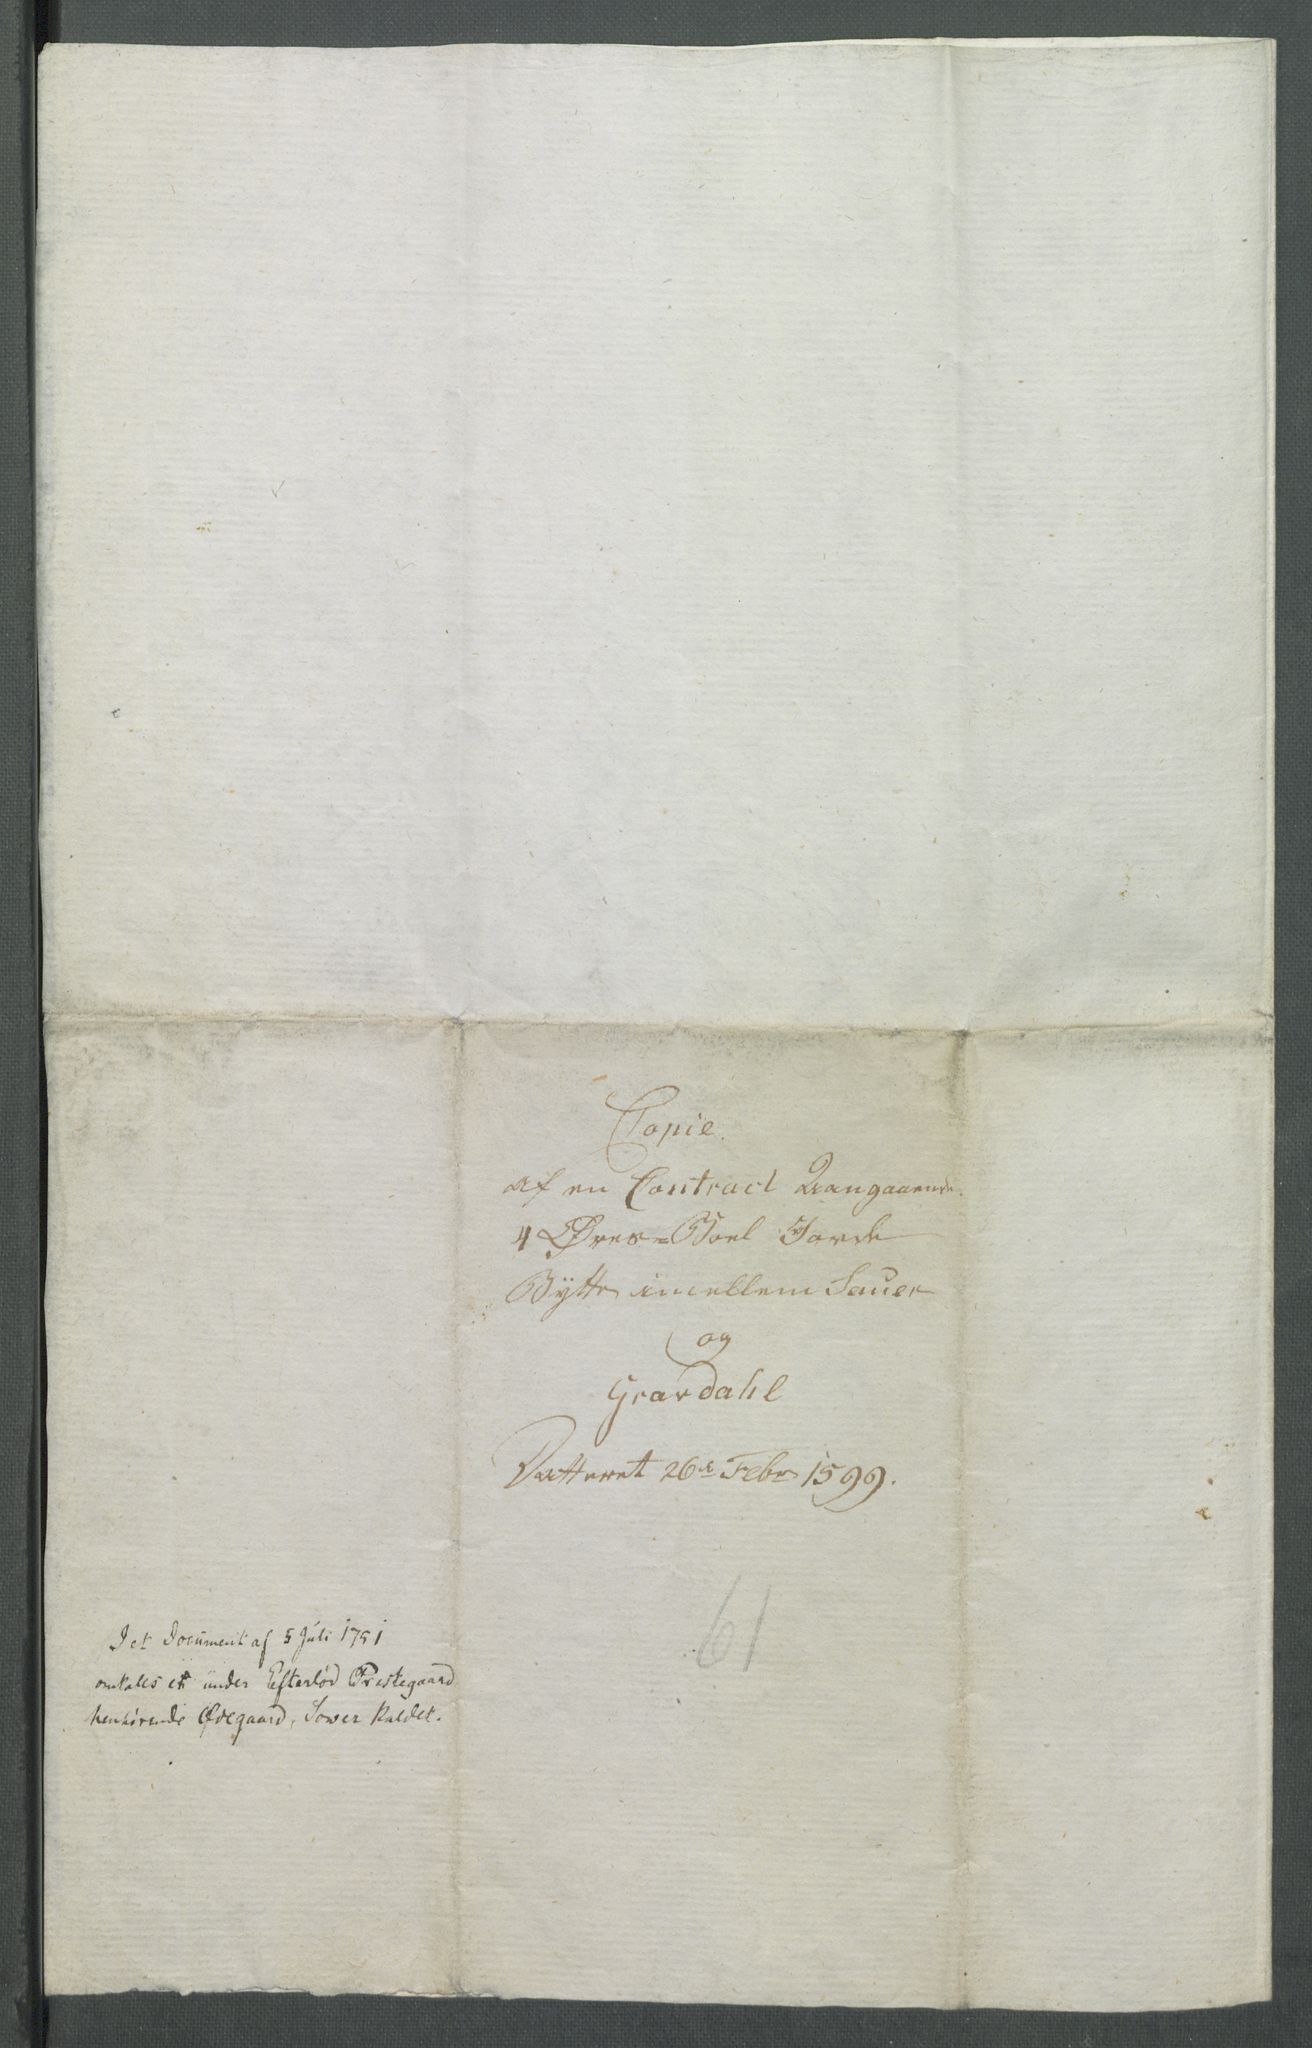 Copie
af en Contract Aangaaende
4 Øres=Boel Jorde
Bytte imellem Sauer
og
Gravdahl
Datteret 26d Febr 1599.
61
I et Document af 5 Juli 1751
omtales et under Efterløv Prestegaard
henhørende Ødegaard, Sower kaldet.